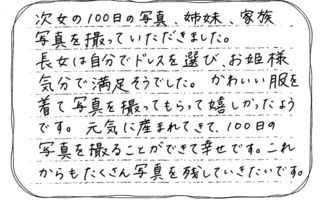 次女の100日の写真、姉妹、家族
写真を撮っていただきました。
長女は自分でドレスを選び、お姫様
気分で満足そうでした。かわいい服を
着て写真を撮ってもらって嬉しかったよう
です。元気に産まれてきて、100日の
写真を撮ることができて幸せです。これ
からもたくさん写真を残していきたいです。